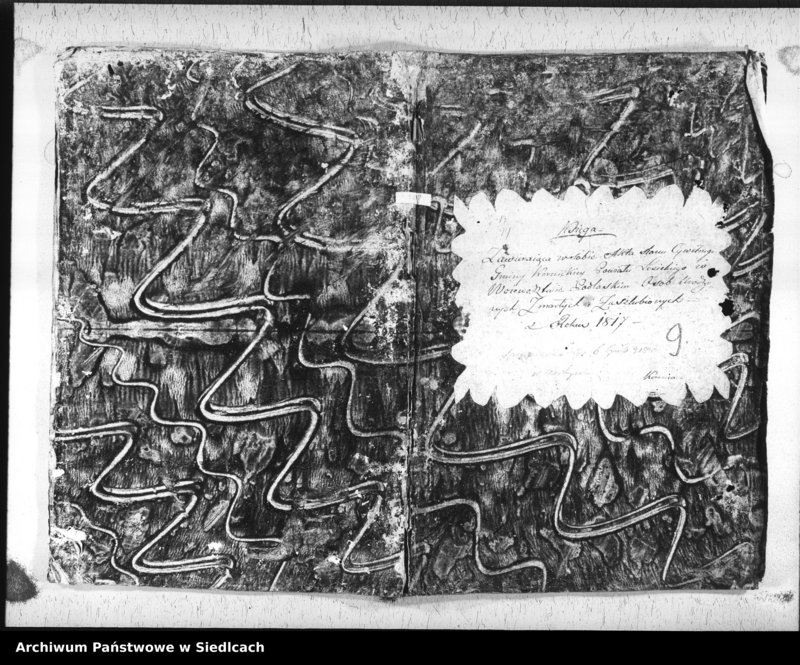 Xsięga
Zawieraiąca w sobie Akta Stanu Cywilnego
Gminy Kornickiey Powiatu Łosickiego w
Woiewództwie Podlaskim Osob Urodzo
nych Zmarłych i Zaszlubionych
z Roku 1817 -
9.
Archiwum Państwowe w Siedlcach